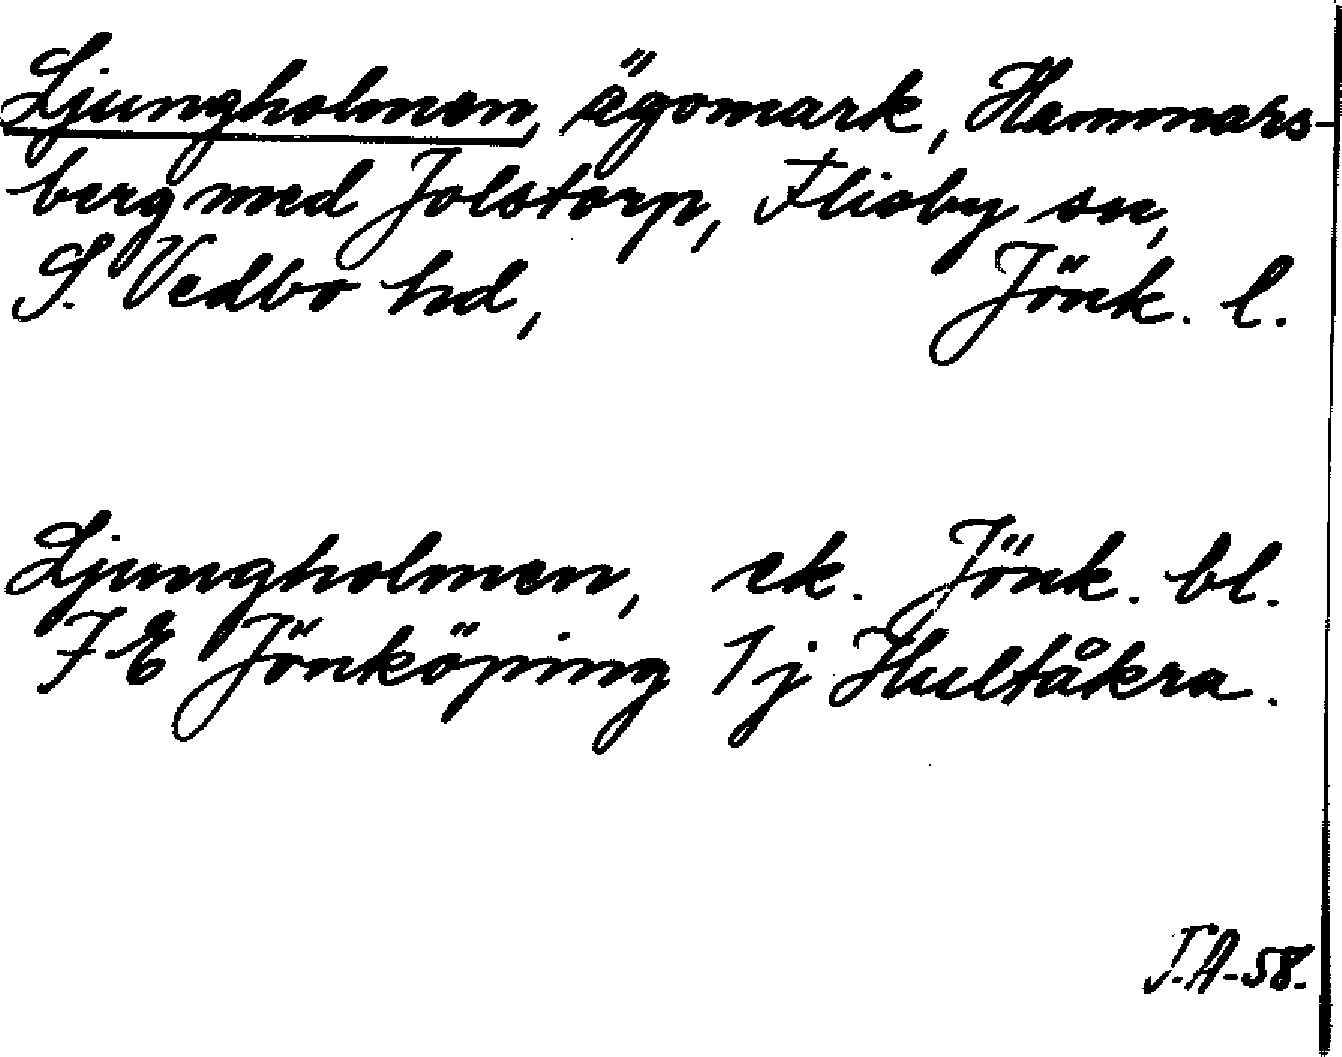 Ljungholmen, ägomark, Hammars-
berg med Jolstorp, Flisby sn,
S. Vedbo hd, Jönk. l.
Ljungholmen, ek. Jönk. bl.
7E Jönköping 1j Hultåkra.
J.A-58.